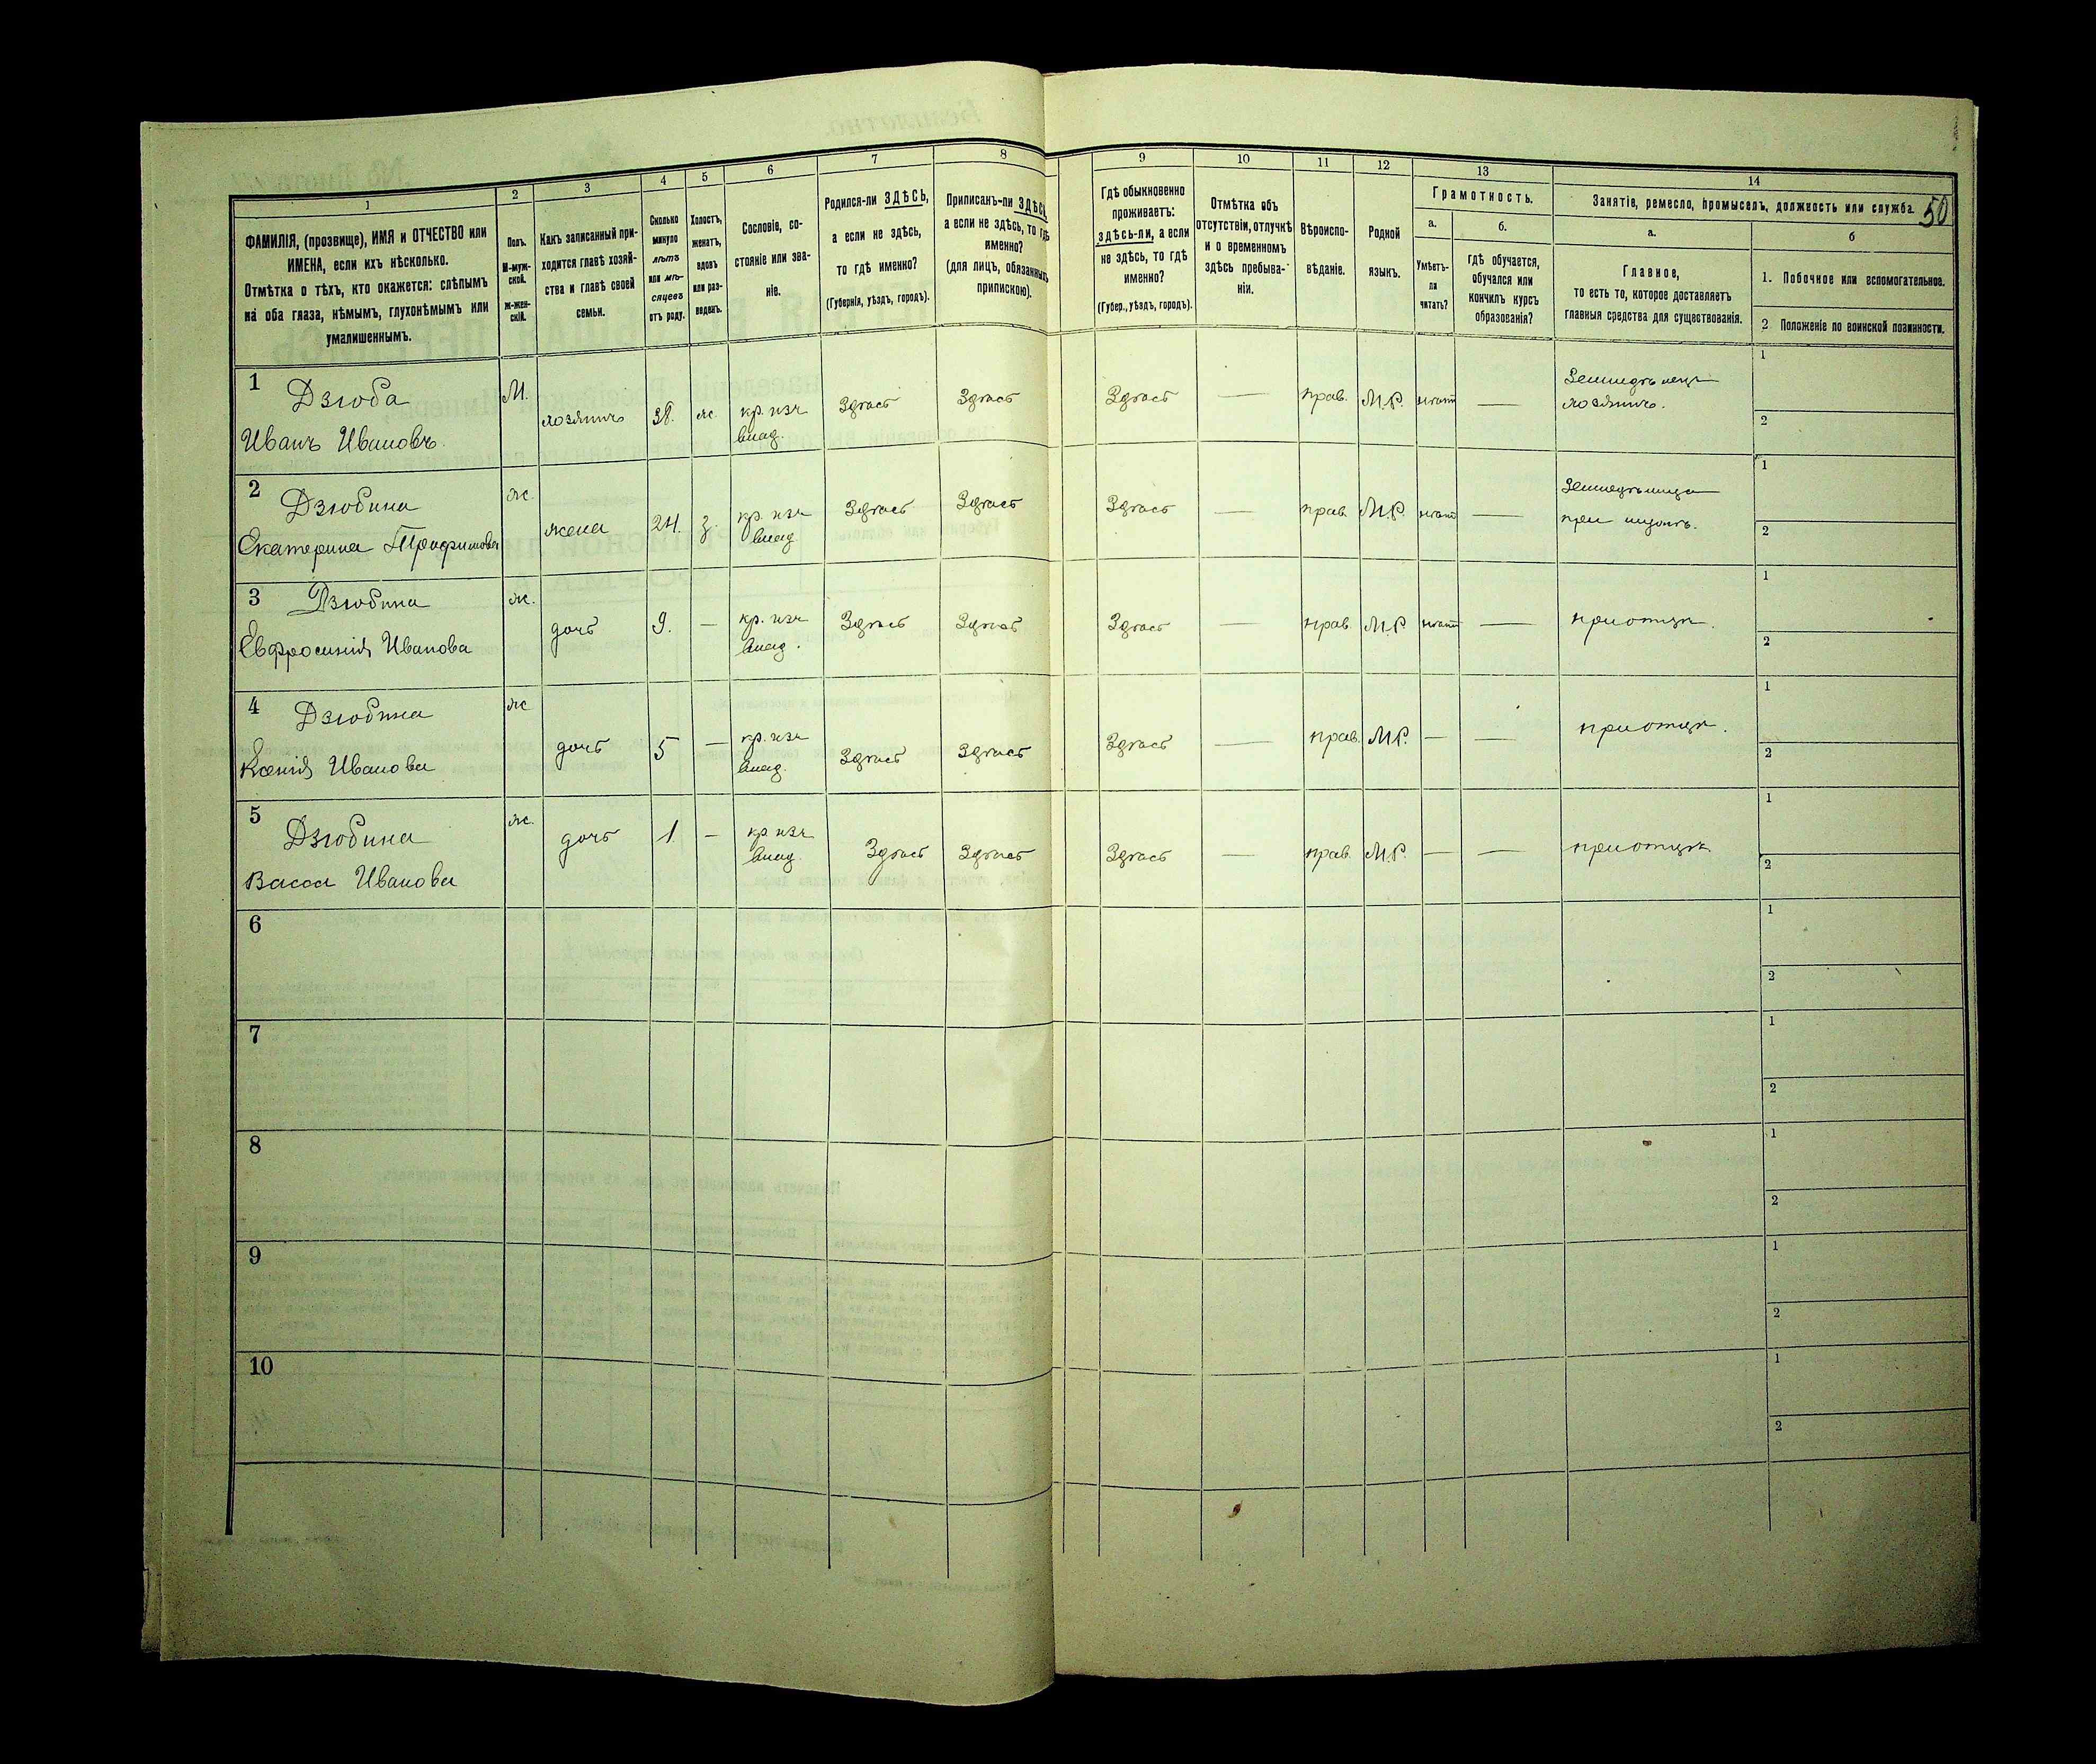 1
2
3
4
5
6
7
8
9
10
11
12
13
14
50
ФАМИЛІЯ, (прозвище), ИМЯ и ОТЧЕСТВО или
ИМЕНА, если ихъ нѣсколько.
Отмѣтка о тѣхъ, кто окажется: слѣпымъ
на оба глаза, нѣмымъ, глухонѣмымъ или
умалишеннымъ.
Полъ.
М-муж-
ской.
Ж-жен-
скій.
Какъ записанный при-
ходится главѣ хозяй-
ства и главѣ своей
семьи.
Сколько
минуло
лѣтъ
или мѣ-
сяцевъ
отъ роду.
Холостъ,
женатъ,
вдовъ
или раз-
веденъ.
Сословіе, со-
стояніе или зва-
ніе.
Родился-ли ЗДѢСЬ,
а если не здѣсь,
то гдѣ именно?
(Губернія, уѣздъ, городъ).
Приписанъ-ли ЗДѢСЬ,
а если не здѣсь, то гдѣ
именно?
(для лицъ, обязанныхъ
припискою).
Гдѣ обыкновенно
проживаетъ:
здѣсь-ли, а если
не здѣсь, то гдѣ
именно?
(Губер., уѣздъ, городъ).
Отмѣтка объ
отсутствіи, отлучкѣ
и о временномъ
здѣсь пребыва-
ніи.
Вѣроиспо-
вѣданіе.
Родной
языкъ.
Грамотность.
а.
Умѣетъ-
ли
читать?
б.
гдѣ обучается,
обучался или
кончилъ курсъ
образованія?
Занятіе, ремесло, промыселъ, должность или служба.
а.
Главное,
то есть то, которое доставляетъ
главныя средства для существованія.
б
1. Побочное или вспомогательное.
2 Положеніе по воинской повинности.
1 Дзюба
Иванъ Ивановъ
М.
хозяинъ
38.
ж.
кр. изъ
влад.
Здѣсь
Здѣсь
Здѣсь
—
прав.
М.Р.
нѣтъ
—
Земледѣлецъ
хозяинъ.
1
2
2 Дзюбина
Екатерина Трофимова
ж.
жена
24.
З.
кр. изъ
влад.
Здѣсь
Здѣсь
Здѣсь
—
прав.
М.Р.
нѣтъ
—
при
1
2
3 Дзюбина
Евфросинія Иванова
ж.
дочь
9.
—
кр. изъ
влад.
Здѣсь
Здѣсь
Здѣсь
—
прав.
М.Р
нѣтъ
—
при отцѣ.
1
2
4 Дзюбина
Ксенія Иванова
ж
дочь
5
—
кр. изъ
влад.
Здѣсь
Здѣсь
Здѣсь
—
прав.
М.Р.
—
—
при отцѣ.
1
2
5 Дзюбина
Васса Иванова
ж.
дочь
1.
—
кр изъ
влад.
Здѣсь
Здѣсь
Здѣсь
—
прав.
М.Р.
—
—
при отцѣ.
1
2
6
1
2
7
1
2
8
1
2
9
1
2
10
1
2